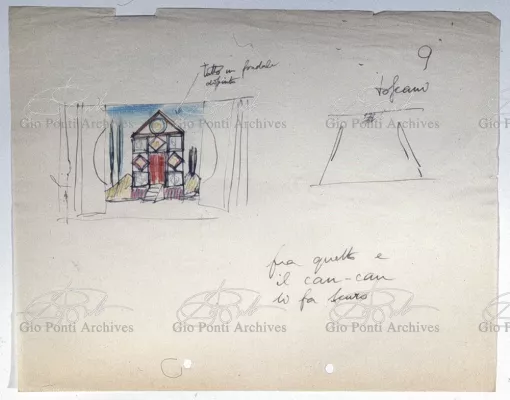 9
tutto un fondale
dipinto
toscano
fra questo e
il can-can
si fa scuro
Gio Ponti Archives
Gio Ponti Archives
Gio Ponti Archives
Gio Ponti Archives
Gio Ponti Archives
Gio Ponti Archives
Gio Ponti Archives
Gio Ponti Archives